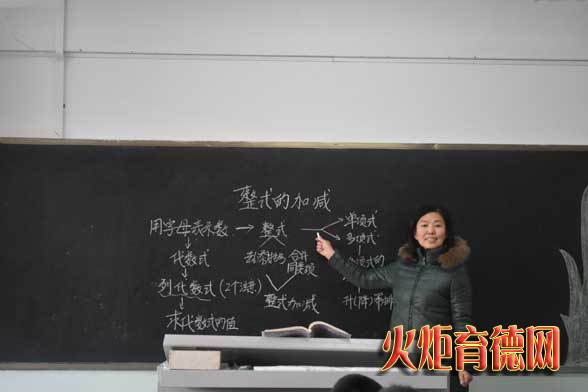 整式的加减
用字母表示数 → 整式
单项式
多项式
代数式
去添括号 合并同类项
列代数式
整式加减
求代数式的值
火炬育德网